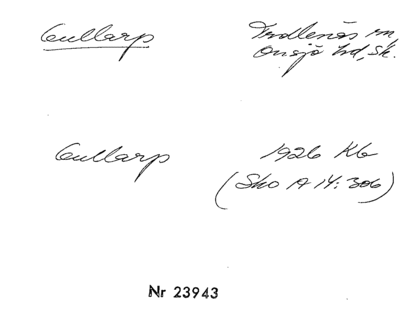 Gullarp Trollenäs sn,
Onsjö hd, Sk.
Gullarp 1926 Kb
(Sko A 14: 306)
Nr 23943